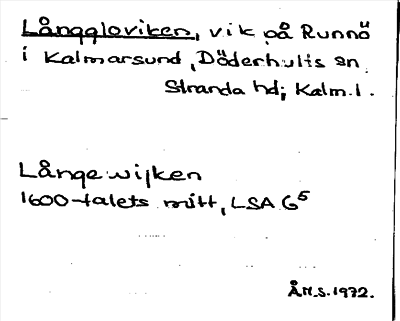 Långgloviken, vik på Runnö
i Kalmarsund, Döderhults sn.
Stranda hd; Kalm. l.
Långe wijken
1600-talets mitt, LSA G⁵
ÅN.S. 1972.